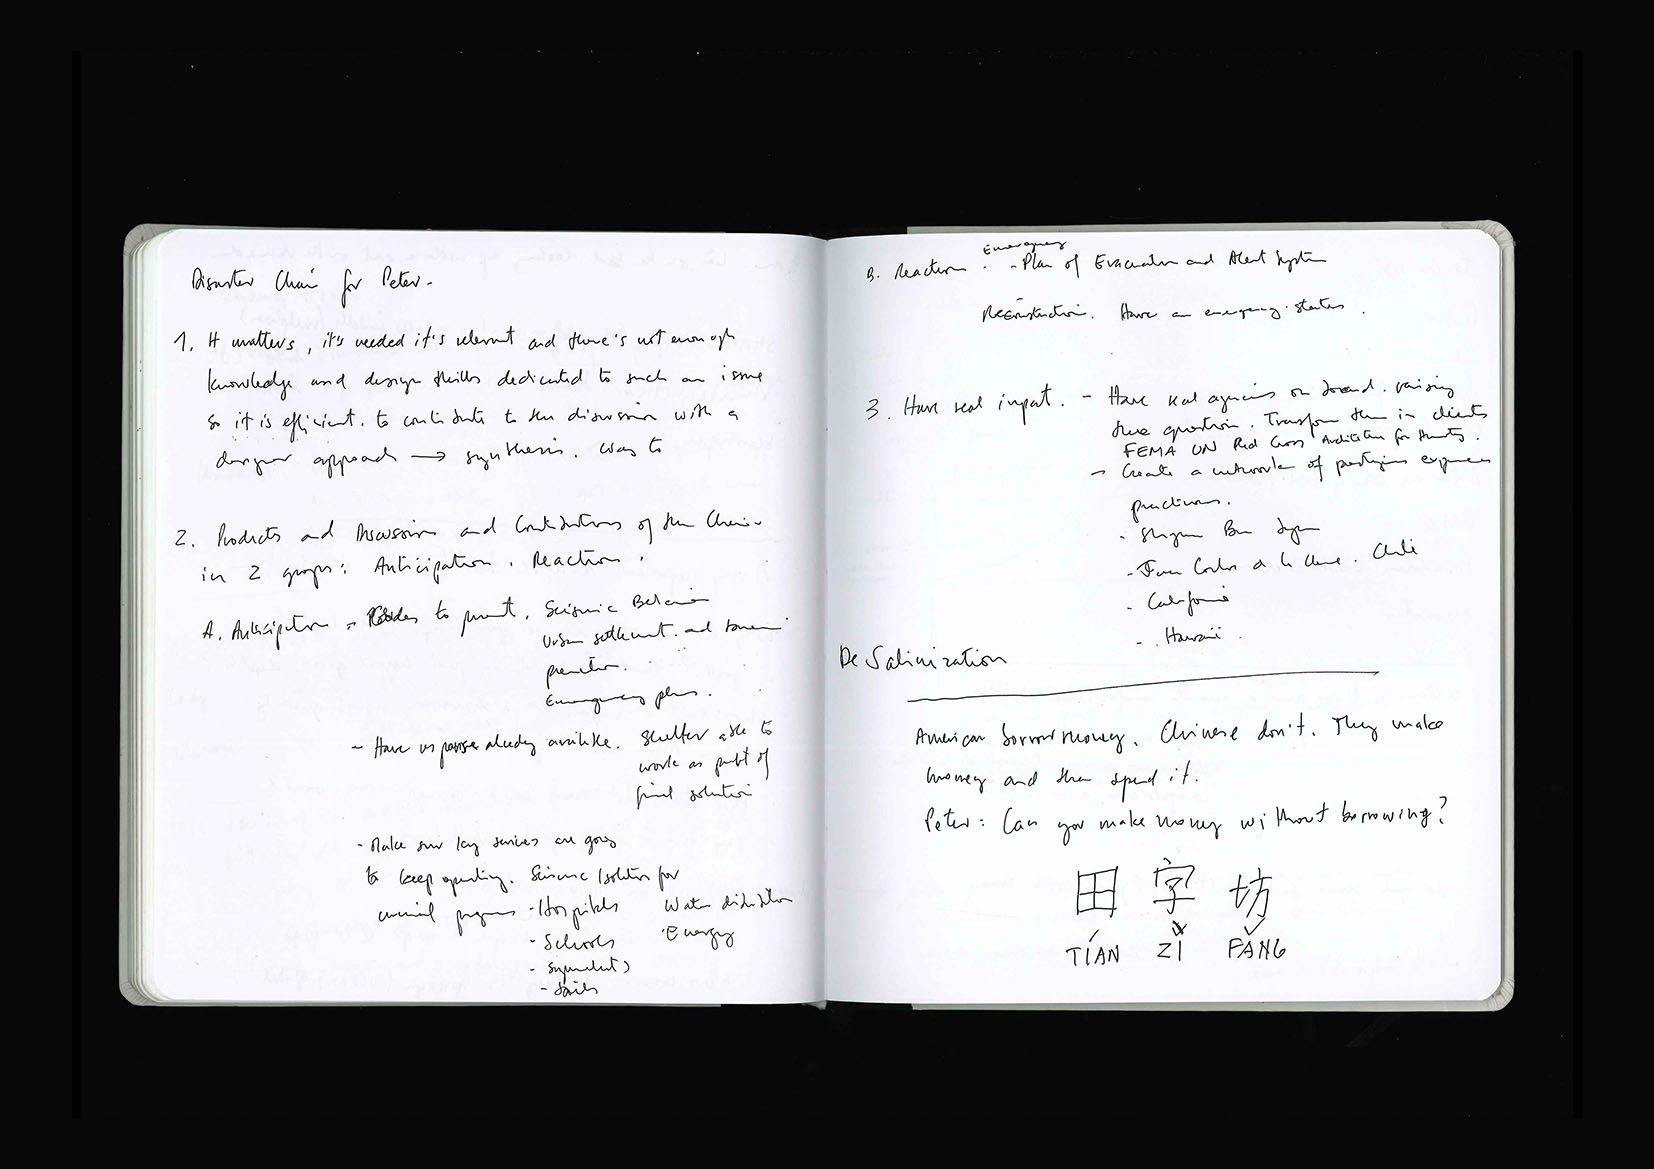 Disaster Chair for Peter.
1. It matters, it's needed it's relevant and there's not enough
knowledge and design skills dedicated to such an issue
so it is efficient. to contribute to the discussion with a
designer approach → synthesis. way to
2. Products and Discussions and Contributions of the Chair.
in 2 groups: Anticipation. Reaction.
A. Anticipation = to prevent. Seismic Behavior
Urban settlement. and
Emergency plans.
- Have already available. Shelter able to
work as part of
final solution
- Make sure key services are going
to keep operating. Seismic Isolation for
crucial programs - Hospitals Water distribution
- Schools Energy
-
-
Emergency
B. Reaction. - Plan of Evacuation and Alert System
Reconstruction. Have an emergency status.
3. Have real impact. - Have real agencies on board. raising
these question. Transform them in clients
FEMA UN Red Cross Architecture for Humanity.
- Create a network of prestigious
- Shigeru Ban Japan
- Juan Carlos de la Chile
- California
- Hawaii.
DeSalinization
American borrow money. Chinese don't. They make
money and then spend it.
Peter: Can you make money without borrowing?
田 字 坊
TIÁN ZÌ FĂNG